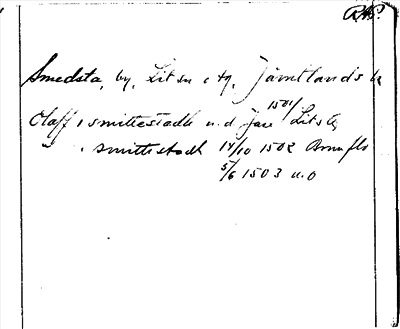 RAP.
Smedsta, by, Lits sn o tg, Jämtlands l.
Olaff i smittestadh u.d. Jare 1501/ Lits tg
" i smittistadh 14/10 1502 Brunflo
5/6 1503 u.o